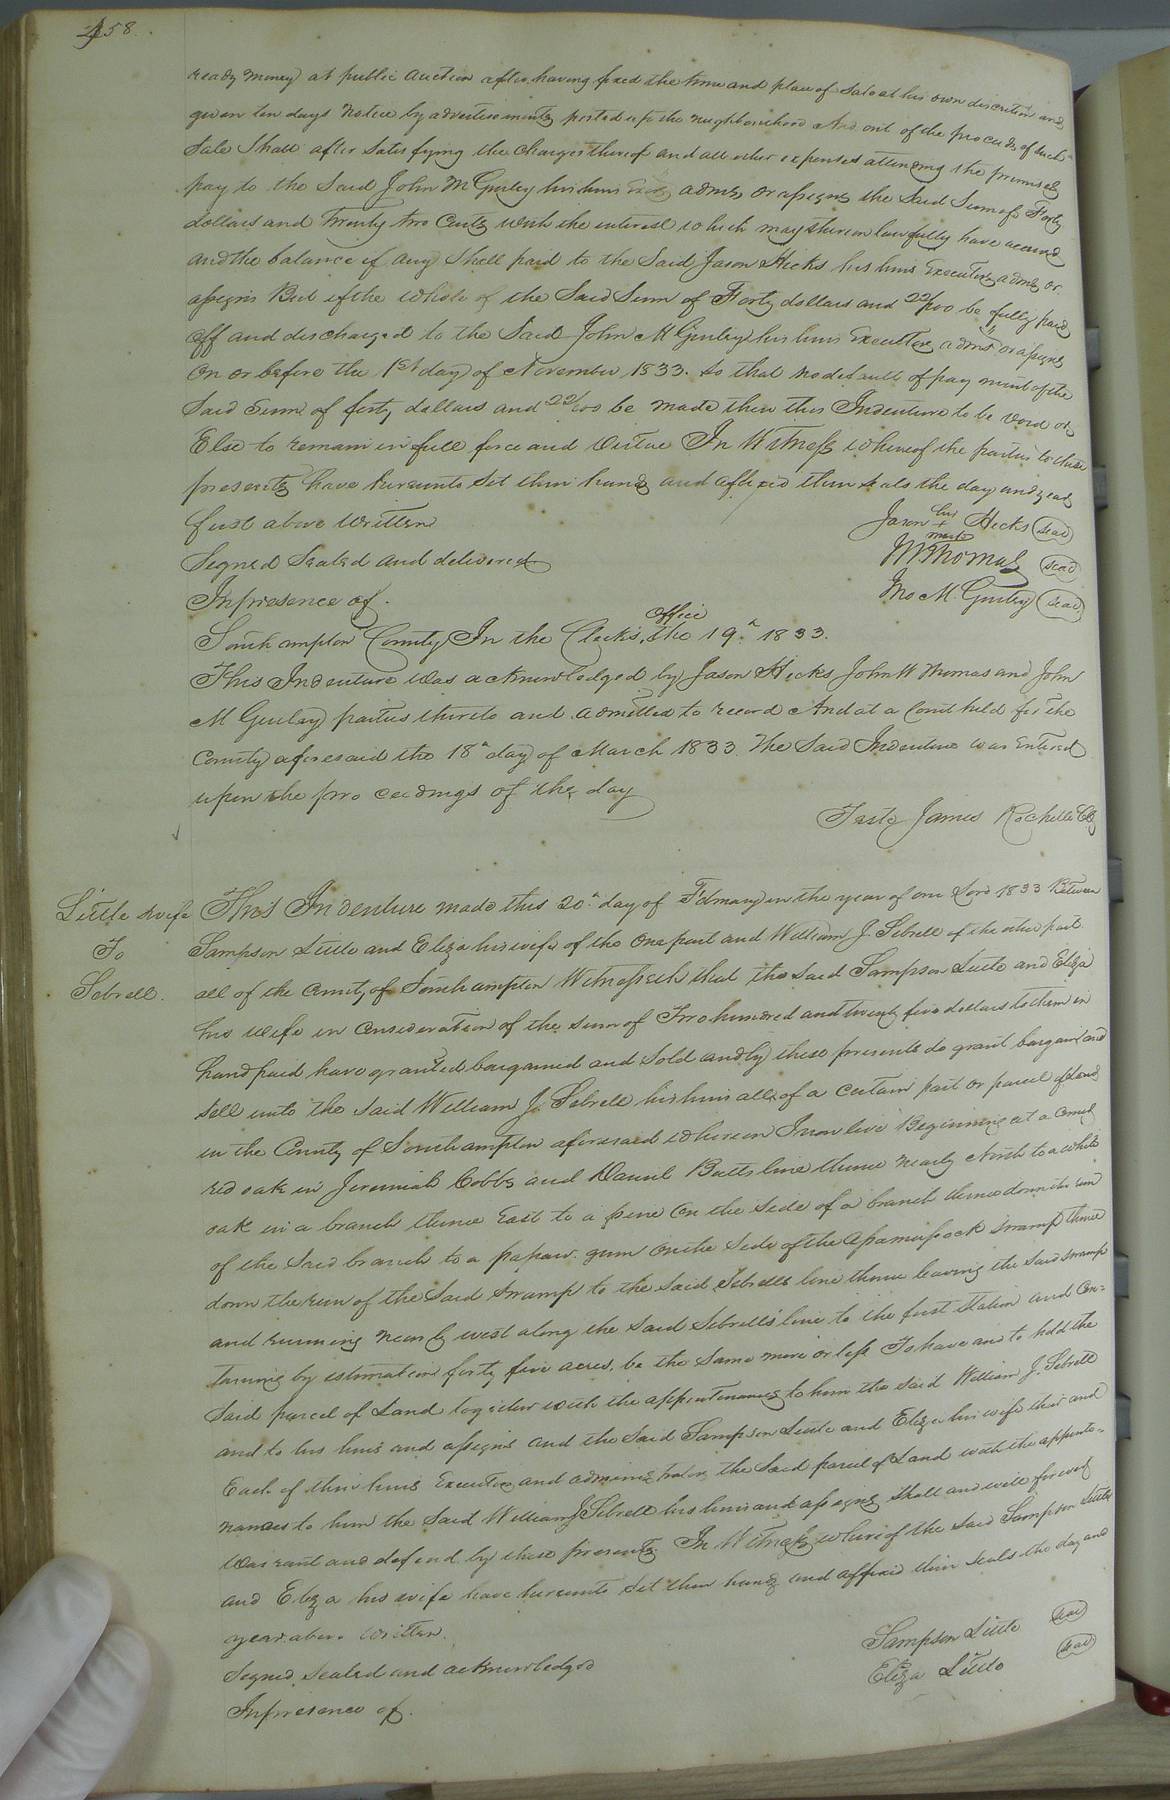 458.
ready money at public auction after having fixed the time and place of Sale at his own discretion and
given ten days notice by advertisements posted up the neighbourhood And out of the proceeds of such
Sale Shall after Satisfying the charges thereof and all other expenses attending the premises
pay to the Said John M Gurley his heirs Exors adms, or assigns the Said Sum of Forty
dollars and Twenty two Cents with the interest which may thereon lawfully have accrued
and the balance if any Shall paid to the Said Jason Hicks his heirs Executors adms or
assigns But if the whole of the Said Sum of Forty dollars and 22/100 be fully paid
off and discharged to the Said John M Gurley his heirs Executors, adms or assigns
On or before the 1st day of November 1833. So that no default of payment of the
Said Sum of forty dollars and 22/100 be made then this Indenture to be void or
Else to remain in full force and virtue In Witness whereof the parties to these
presents have hereunto Set their hands and affixed their Seals the day and year
first above written
Jason his + mark Hicks (seal)
Signed Sealed and delivered
(seal)
In presence of.
Jno M. Gurley (seal)
Southampton County In the Clerk's Office the 19th 1833.
This Indenture was acknowledged by Jason Hicks John W Thomas and John
M Gurley parties thereto and admitted to record And at a Court held for the
County aforesaid the 18th day of March 1833 The Said Indenture was Entered
upon the proceedings of the day
Teste James Rochelle Clk
Little & wife
To
Sebrell.
This Indenture made this 20th day of February in the year of our Lord 1833 Between
Sampson Little and Eliza his wife of the One part and William J. Sebrell of the other part
all of the County of Southampton Witnesseth that the Said Sampson Little and Eliza
his wife in Consideration of the sum of Two hundred and twenty five dollars to them in
hand paid have granted bargained and Sold and by these presents do grant bargain and
sell unto the Said William J. Sebrell his heirs all of a certain part or parcel of Land
in the County of Southampton aforesaid whereon I now live Beginning at a
red oak in Jeremiah Cobbs and Daniel Butts line thence nearly North to a white
oak in a branch thence East to a pine On the Side of a branch thence down the run
of the Said branch to a papaw gum On the Side of the Assamusock Swamp thence
down the run of the Said Swamp to the Said Sebrells line thence leaving the Said Swamp
and running nearly west along the Said Sebrells' line to the first Station and Con=
taining by estimation forty five acres, be the Same more or less To have and to hold the
Said parcel of Land together with the appurtenances to him the Said William J. Sebrell
and to his heirs and assigns and the Said Sampson Little and Eliza his wife their and
Each of their heirs Executors and administrators the Said parcel of Land with the appurte=
nances to him the Said William J Sebrell his heirs and assigns Shall and will forever
Warrant and defend by these presents In Witness whereof the Said Sampson Little
and Eliza his wife have hereunto Set their hands and affixed their Seals the day and
year above written.
Sampson Little (seal)
Signed, Sealed and acknowledged
Eliza Little (seal)
In presence of.